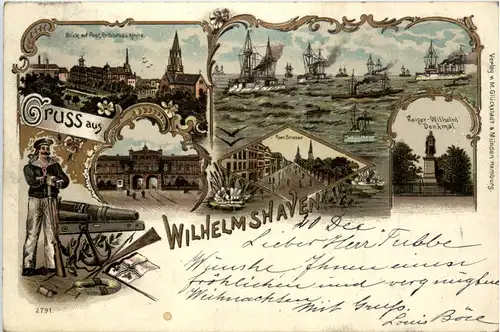 Blick auf Post, Rathhaus u. Kirche.
Gruss aus
Roon-Strasse
Kaiser-Wilhelm
Denkmal.
Verlag v. M. Glückstadt & Münden, Hamburg.
Wilhelmshaven
20 Dec
Lieber Herr Tubbe
Wünsche Ihnen einen
fröhlichen und vergnügten
Weihnachten
Mit Gruß.
Louis
2791.